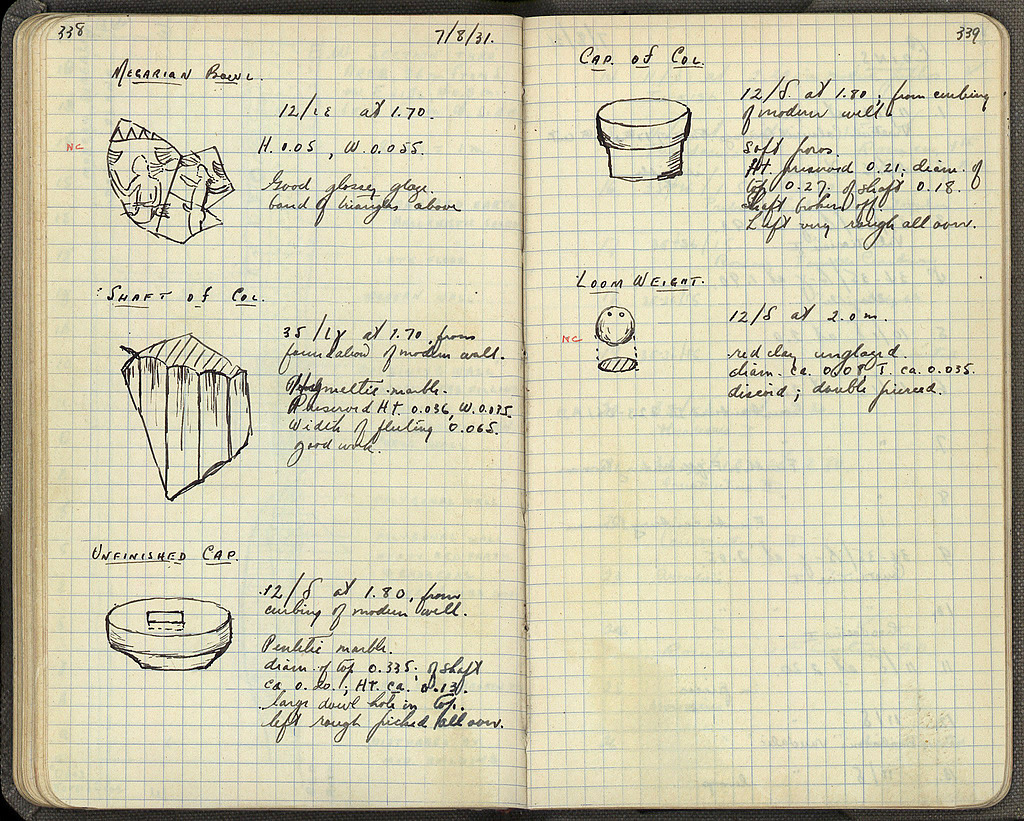 338
7/8/31.
MEGARIAN BOWL.
12/ΙΕ at 1.70.
NC
H. 0.05, W. 0.055.
Good glossy glaze.
band of triangles above
SHAFT OF COL.
35/ΙΓ at 1.70, from
foundation of modern wall.
marble.
Preserved HT. 0.036, W. 0.035.
Width of fluting 0.065.
good work.
UNFINISHED CAP.
12/δ at 1.80, from
curbing of modern well.
Pentelic marble.
diam. of top 0.335; of shaft
ca 0.20.; HT. ca. 0.13.
large dowl hole in top.
left rough picked all over.
339
CAP. OF COL.
12/δ at 1.80; from curbing
of modern well.
Soft poros.
HT. preserved 0.21; diam. of
top 0.27. of shaft 0.18.
Shaft broken off
Left very rough all over.
LOOM WEIGHT.
12/δ at 2.0 m.
NC
red clay unglazed.
diam. ca. T. ca. 0.035.
discoid; double pierced.